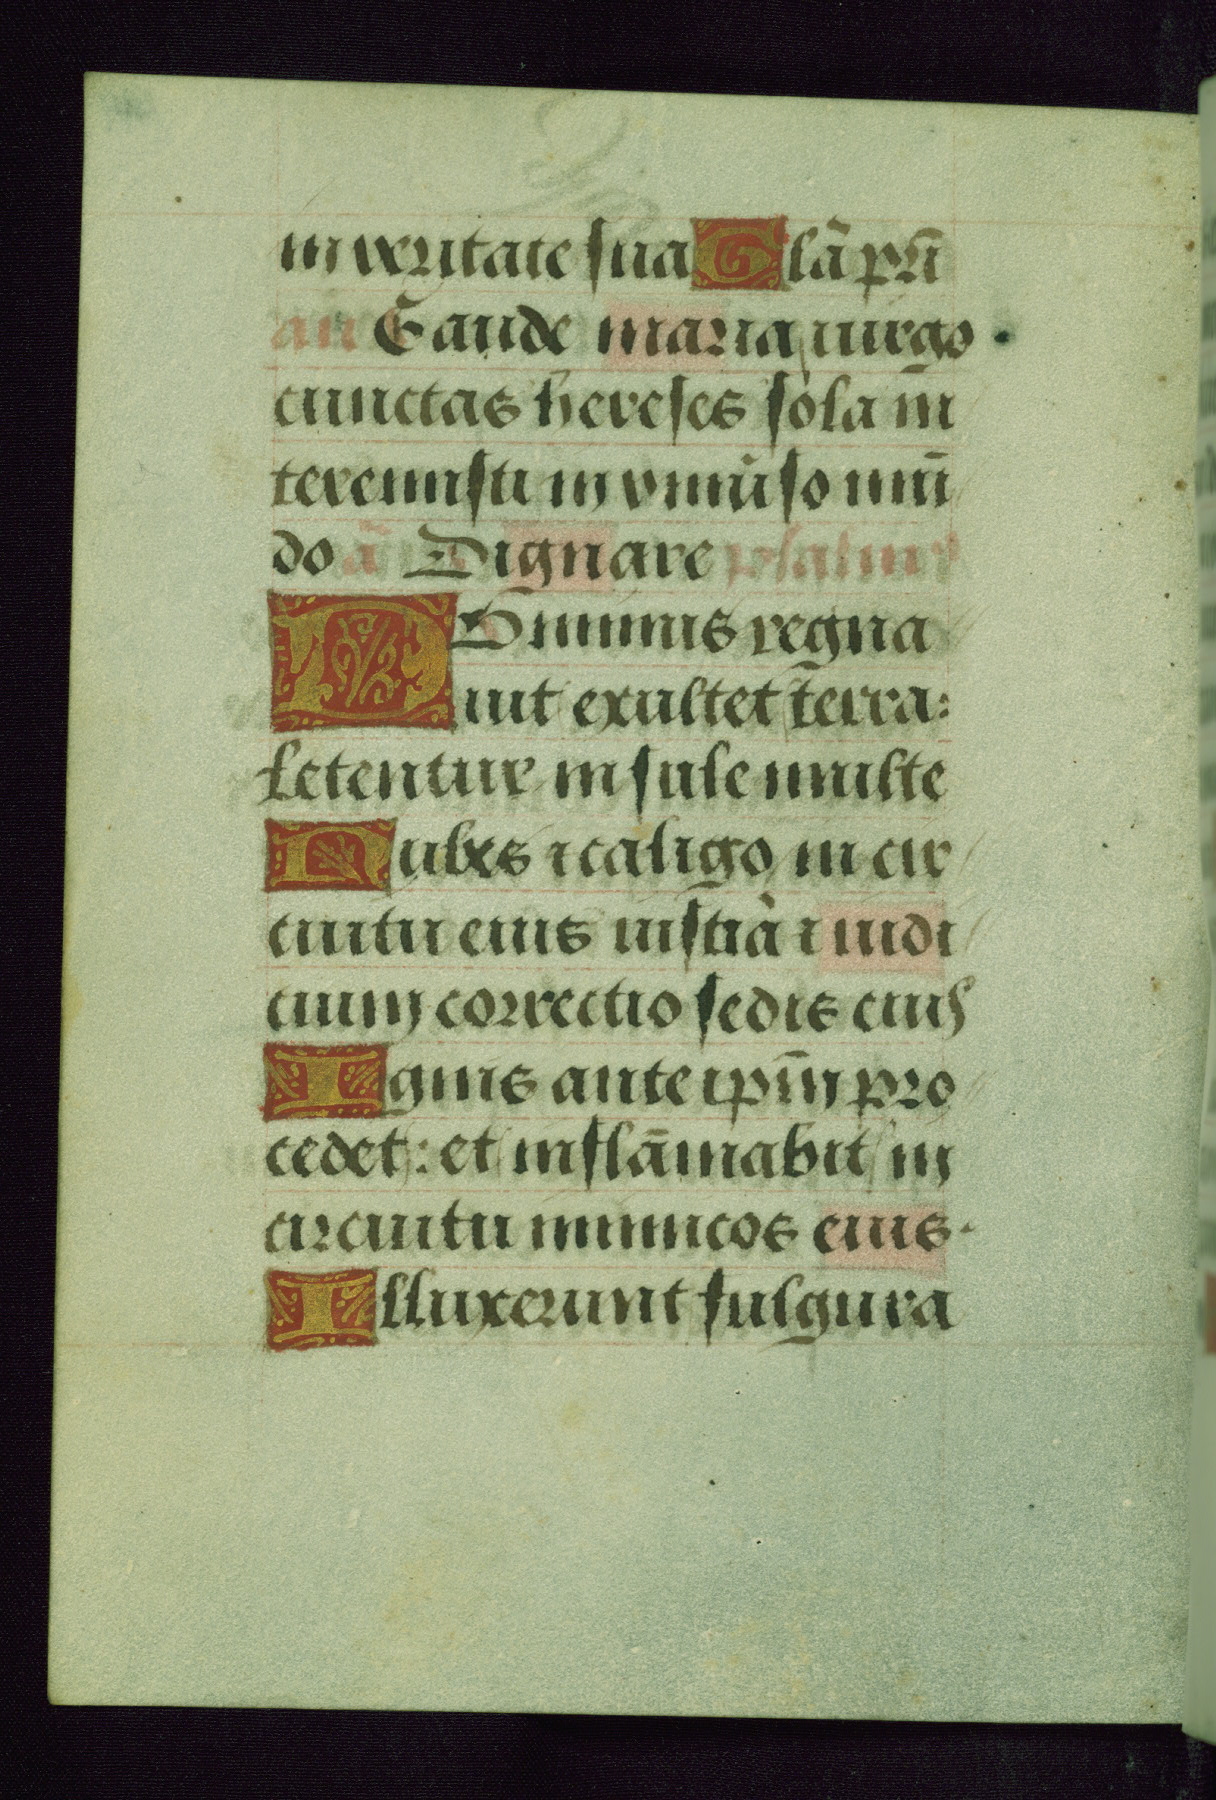 in veritate sua Glã pr̃i
an Gaude maria uirgo
cunctas hereses sola in
teremisti in vniũso mũ
do ã Dignare psalmꝰ
DOminus regna
uit exultet terra:
letentur insule multe
Nubes ⁊ caligo in cir
cuitu eius iustiã ⁊ iudi
cium correctio sedis eius
Ignis ante ipm̃ pro
cedet: et inflãmabit in
circuitu inimicos eius.
Illuxerunt fulgura